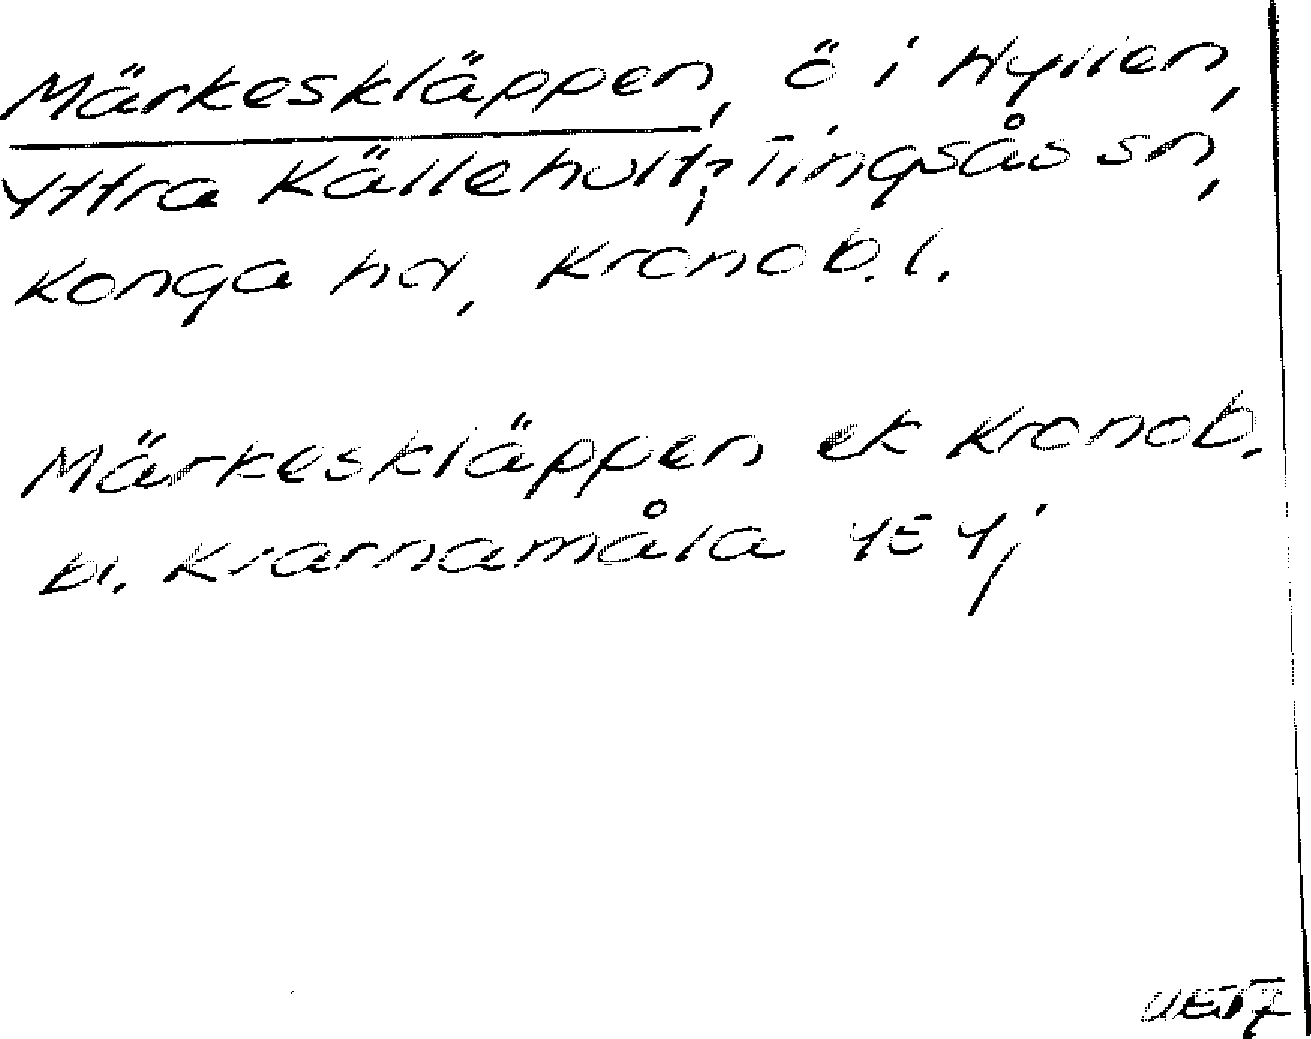 Märkeskläppen, ö i Hyllen,
Yttra Källehult, Tingsås sn,
Konga hd, Kronob. l.
Märkeskläppen ek Kronob.
bl. Kvarnamåla 4E 4j